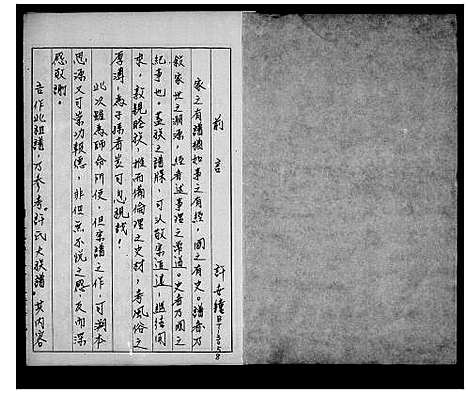 前言
許士鐘
家之有譜猶如事之有經，國之有史。譜者乃
敍家世之淵源，經者述事理之常道。史者乃國之
紀事也。蓋族之譜牒，可以敬宗追遠，繼往開
來，敦親睦族，推而備倫理之史材，考風俗之
厚薄，為子孫者豈可忽視哉！
此次雖為師命所使，但宗譜之作，可溯本
思源又可崇功報德，非但無不悅之感，反而深
感敬謝。
吾作此祖譜，乃參考許氏大族譜。其內容